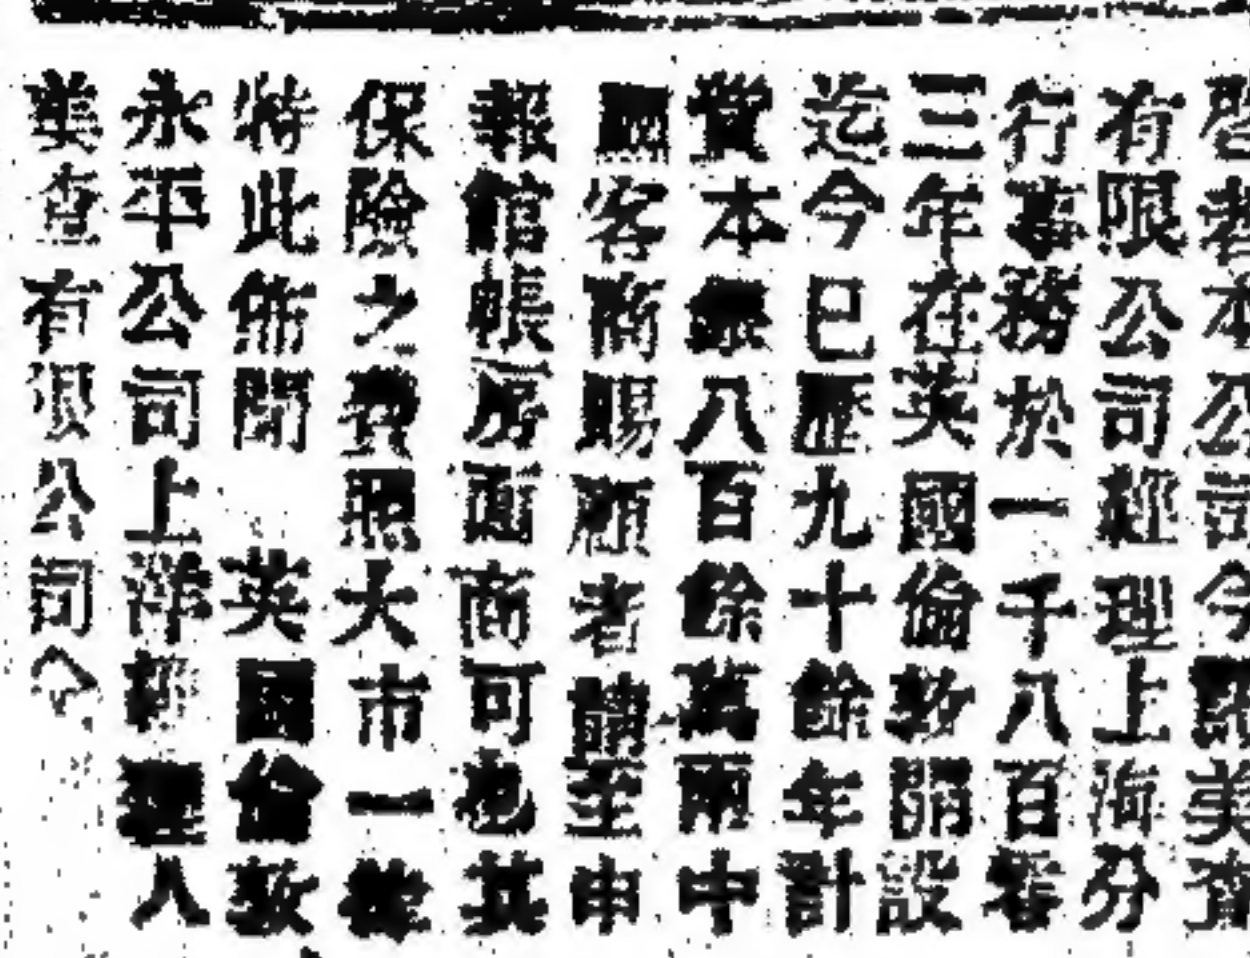 啓者本公司今託美查
有限公司經理上海分
行事務於一千八百零
三年在英國倫敦開設
迄今已歷九十餘年計
資本銀八百餘萬兩中
外客商賜顧者請至申
報館帳房面商可也其
保險之費照大市一律
特此佈聞 英國倫敦
永平公司上洋經理人
美查有限公司仝